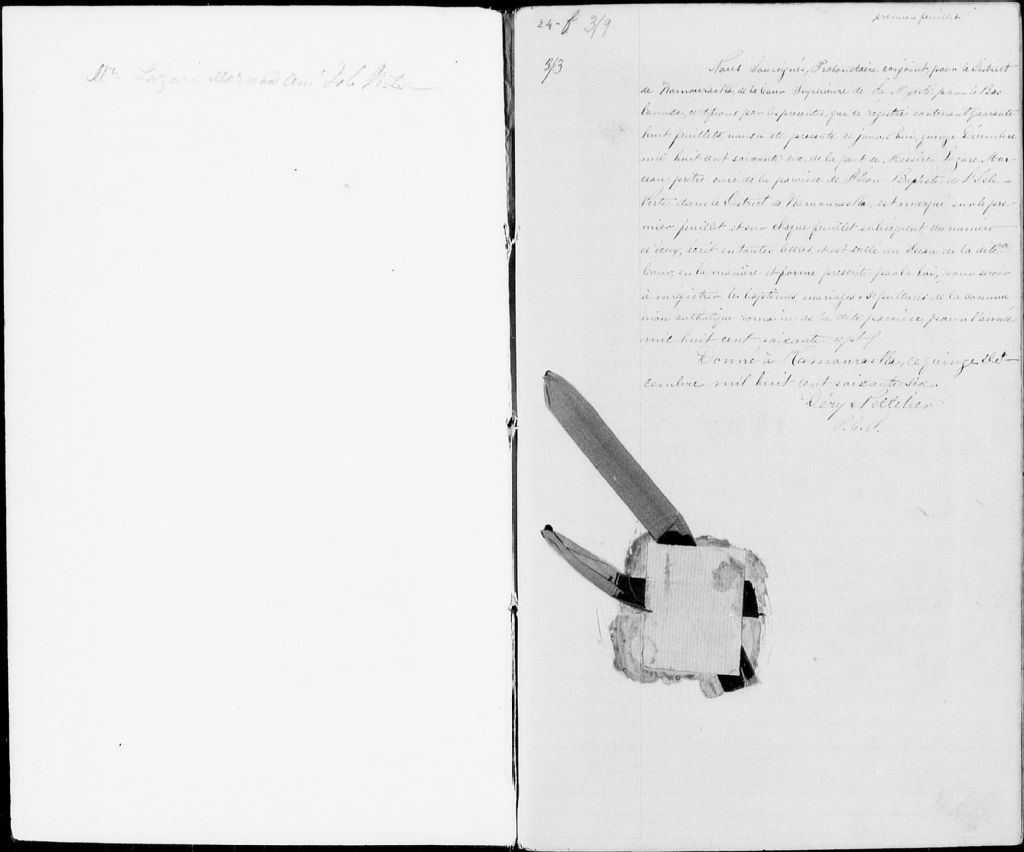 Mr Lazare Marceau curé Isle Verte
24 - f 3/9
premier feuillet
3/3
Nous Soussignés, Protonotaire conjoint pour le District
de Kamouraska de la Cour Supérieure de Sa Majesté pour le Bas
Canada, certifions par les presentes, que ce régistre contenant quarante
huit feuillets, nous a été présenté ce jourd'hui, quinze Décembre
mil huit cent soixante six, de la part de Messire Lazare Mar-
ceau prêtre curé de la paroisse de St Jean Baptiste de l'Isle-
Verte dans le District de Kamouraska, est marqué sur le pre-
mier feuillet et sur chaque feuillet subséquent du numéro
d'iceux, écrit en toutes lettres, et est scellé du Sceau de la dite
Cour, en la manière et forme prescrite par la loi, pour servir
à enrégistrer les baptêmes mariages & sépultures de la commu-
nion catholique romaine de la dite paroisse, pour l'année
mil huit cent soixante sept /
Donné à Kamouraska, ce quinze Dé-
cembre mil huit cent soixante six.
Déry & Pelletier
P.C.S.